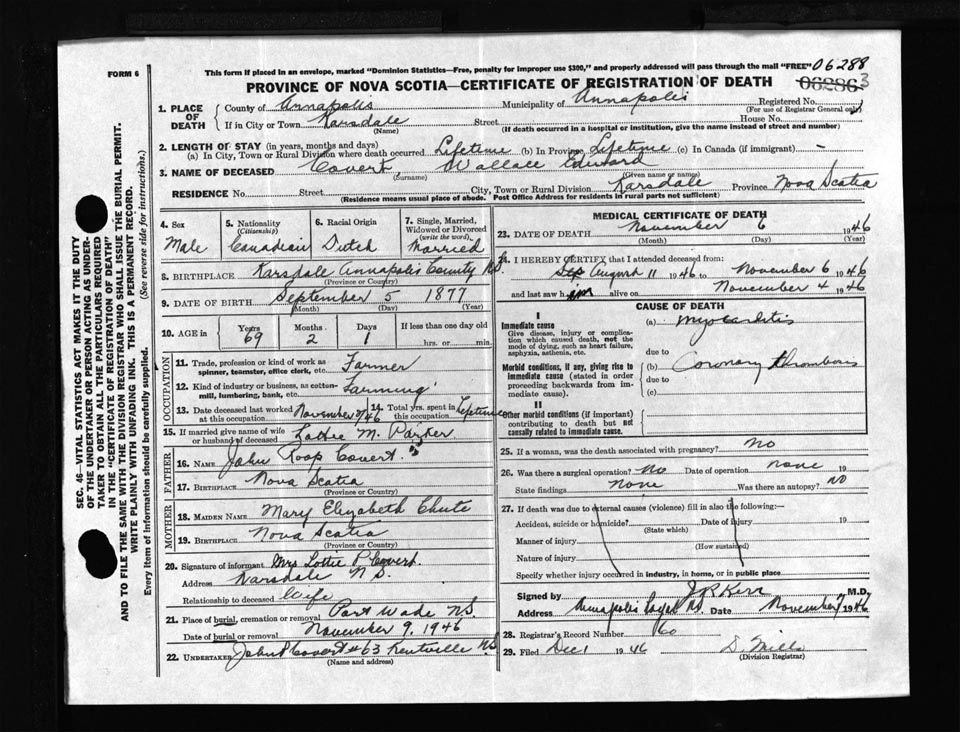 FORM 6
This form if placed in an envelope, marked "Dominion Statistics—Free, penalty for improper use $300," and properly addressed will pass through the mail "FREE" 06288
PROVINCE OF NOVA SCOTIA—CERTIFICATE OF REGISTRATION OF DEATH 06286 3
1. PLACE OF DEATH County of Annapolis Municipality of Annapolis Registered No.
(For use of Registrar General only)
If in City or Town Karsdale Street House No.
(Name) (If death occurred in a hospital or institution, give the name instead of street and number)
2. LENGTH OF STAY (in years, months and days)
(a) In City, Town or Rural Division where death occurred Lifetime (b) In Province Lifetime (c) In Canada (if immigrant) —
3. NAME OF DECEASED Covert, Wallace Edward
(Surname) (Given name or names)
RESIDENCE No. Street City, Town or Rural Division Karsdale Province Nova Scotia
(Residence means usual place of abode. Post Office Address for residents in rural parts not sufficient)
4. Sex Male
5. Nationality (Citizenship) Canadian
6. Racial Origin Dutch
7. Single, Married, Widowed or Divorced (write the word) Married
8. BIRTHPLACE Karsdale Annapolis County N.S.
(Province or Country)
9. DATE OF BIRTH September 5 1877
(Month) (Day) (Year)
10. AGE in Years 69 Months 2 Days 1 If less than one day old hrs. or min.
OCCUPATION
11. Trade, profession or kind of work as spinner, teamster, office clerk, etc. Farmer
12. Kind of industry or business, as cotton-mill, lumbering, bank, etc. Farming
13. Date deceased last worked at this occupation November /46 14. Total yrs. spent in this occupation Lifetime
15. If married give name of wife or husband of deceased Lottie M. Parker
FATHER
16. NAME John Roop Covert
17. BIRTHPLACE Nova Scotia
(Province or Country)
MOTHER
18. MAIDEN NAME Mary Elizabeth Chute
19. BIRTHPLACE Nova Scotia
(Province or Country)
20. Signature of informant Mrs Lottie P Covert
Address Karsdale N S.
Relationship to deceased Wife
21. Place of burial, cremation or removal Port Wade N.S.
Date of burial or removal November 9, 1946
22. UNDERTAKER John P Covert #63 Kentville N.S.
(Name and address)
MEDICAL CERTIFICATE OF DEATH
23. DATE OF DEATH November 6 1946
(Month) (Day) (Year)
24. I HEREBY CERTIFY that I attended deceased from:
Sep August 11 1946 to November 6 1946
and last saw him alive on November 4 1946
CAUSE OF DEATH
I
Immediate cause
Give disease, injury or complication which caused death, not the mode of dying, such as heart failure, asphyxia, asthenia, etc.
(a) Myocarditis
due to
Morbid conditions, if any, giving rise to immediate cause (stated in order proceeding backwards from immediate cause).
(b) Coronary thrombosis
due to
(c)
II
Other morbid conditions (if important) contributing to death but not causally related to immediate cause.
25. If a woman, was the death associated with pregnancy? No
26. Was there a surgical operation? No Date of operation none 19
State findings None Was there an autopsy? No
27. If death was due to external causes (violence) fill in also the following:—
Accident, suicide or homicide? Date of injury 19
(State which)
Manner of injury
(How sustained)
Nature of injury
Specify whether injury occurred in industry, in home, or in public place
Signed by J R Kerr M.D.
Address Annapolis Royal N.S. Date November 1946
28. Registrar's Record Number 60
29. Filed Dec 1 1946 D. Mills
(Division Registrar)
SEC. 46—VITAL STATISTICS ACT MAKES IT THE DUTY
OF THE UNDERTAKER OR PERSON ACTING AS UNDER-
TAKER TO OBTAIN ALL THE PARTICULARS REQUIRED
IN THE "CERTIFICATE OF REGISTRATION OF DEATH"
AND TO FILE THE SAME WITH THE DIVISION REGISTRAR WHO SHALL ISSUE THE BURIAL PERMIT.
WRITE PLAINLY WITH UNFADING INK. THIS IS A PERMANENT RECORD.
Every item of information should be carefully supplied. (See reverse side for instructions.)